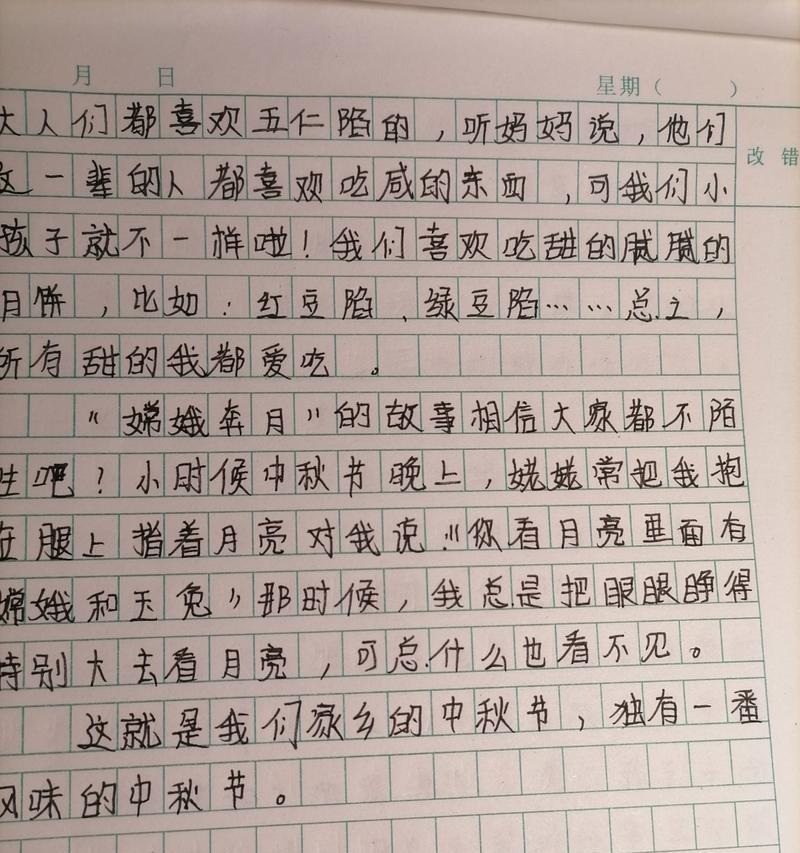 月 日 星期( )
改 错
大人们都喜欢五仁陷的，听妈妈说，他们
这一辈的人都喜欢吃咸的东西，可我们小
孩子就不一样啦！我们喜欢吃甜的腻腻的
月饼，比如：红豆陷、绿豆陷……总之，
所有甜的我都爱吃。
“嫦娥奔月”的故事相信大家都不陌
生吧？小时候中秋节晚上，姥姥常把我抱
在腿上指着月亮对我说：“你看月亮里面有
嫦娥和玉兔”那时候，我总是把眼眼睁得
特别大去看月亮，可总什么也看不见。
这就是我们家乡的中秋节，独有一番
风味的中秋节。